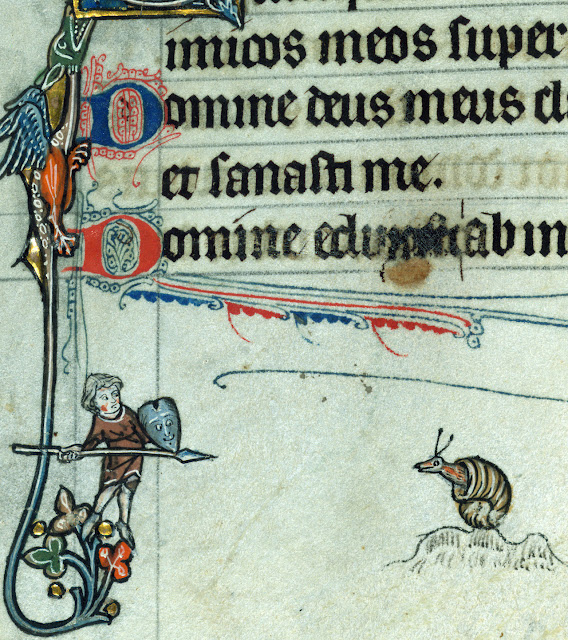 imicos meos super
Domine deus meus cl
et sanasti me.
Domine eduxisti ab in